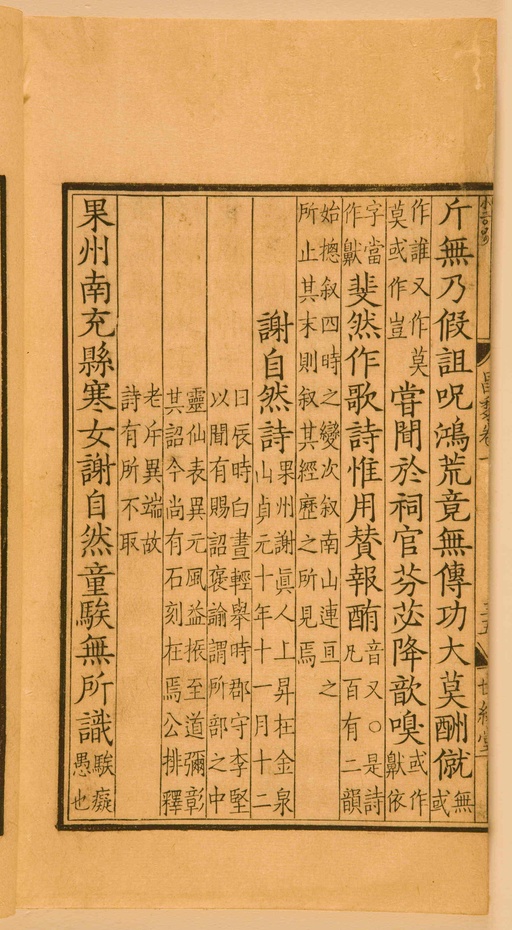 斤無乃假詛呪鴻荒竟無傳功大莫酬僦無
或
作誰又作莫
莫或作豈
嘗聞於祠官芬苾降歆嗅或作
齅依
字當
作齅
斐然作歌詩惟用贊報酭音又○是詩
凡百有二韻
始揔叙四時之變次叙南山連亘之
所止其末則叙其經歷之所見焉
謝自然詩果州謝眞人上昇在金泉
山貞元十年十一月十二
日辰時白晝輕舉時郡守李堅
以聞有賜詔褒諭謂所部之中
靈仙表異元風益振至道彌彰
其詔今尚有石刻在焉公排釋
老斥異端故
詩有所不取
果州南充縣寒女謝自然童騃無所識騃癡
愚也